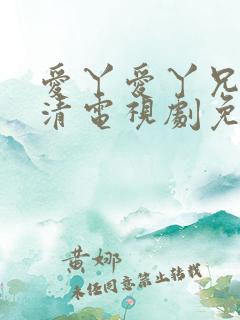 愛丫愛丫兄
清電視劇免
黄娜
未经同意禁止转载